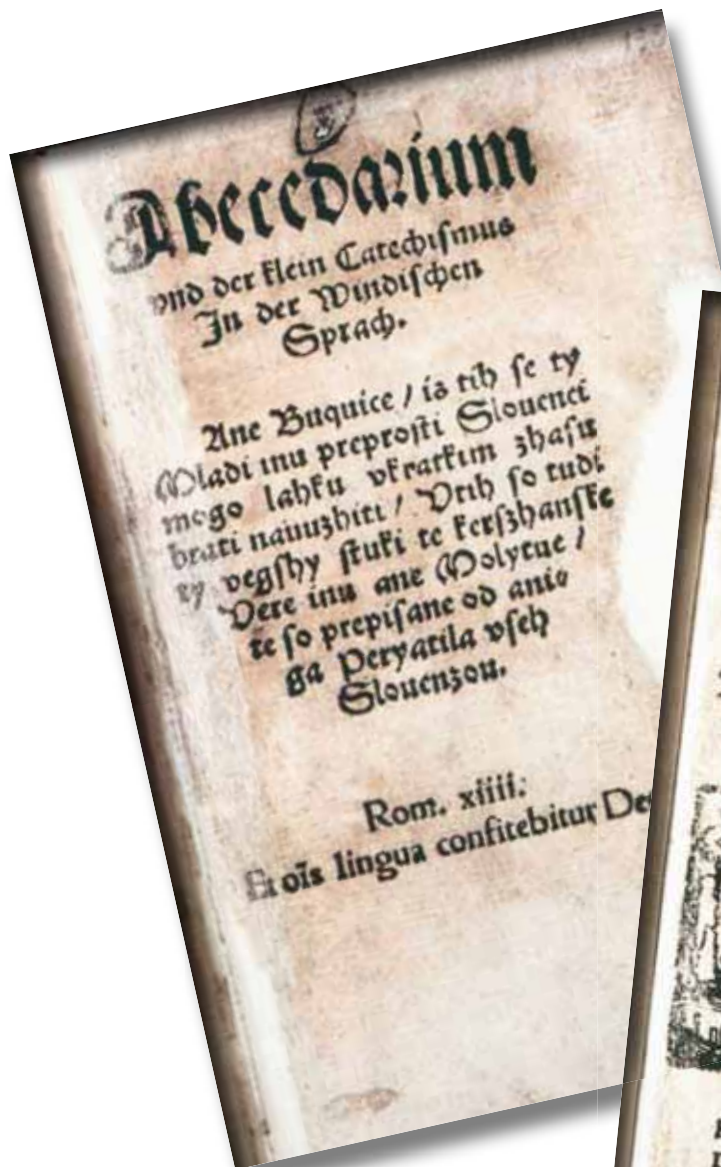 Abecedarium
vnd der klein Catechiſmus
In der Windiſchen
Sprach.
Ane Buquice / is tih ſe ty
Mladi inu preproſti Slouenci
mogo lahku vkratkim zhaſu
brati nauuzhiti / Vtih ſo tudi
ty vegſhy ſtuki te kerſzhanſke
Vere inu ane Molytue /
te ſo prepiſane od anio
ga Peryatila vſeh
Slouenzou.
Rom. xiiii.
Et oīs lingua confitebitur